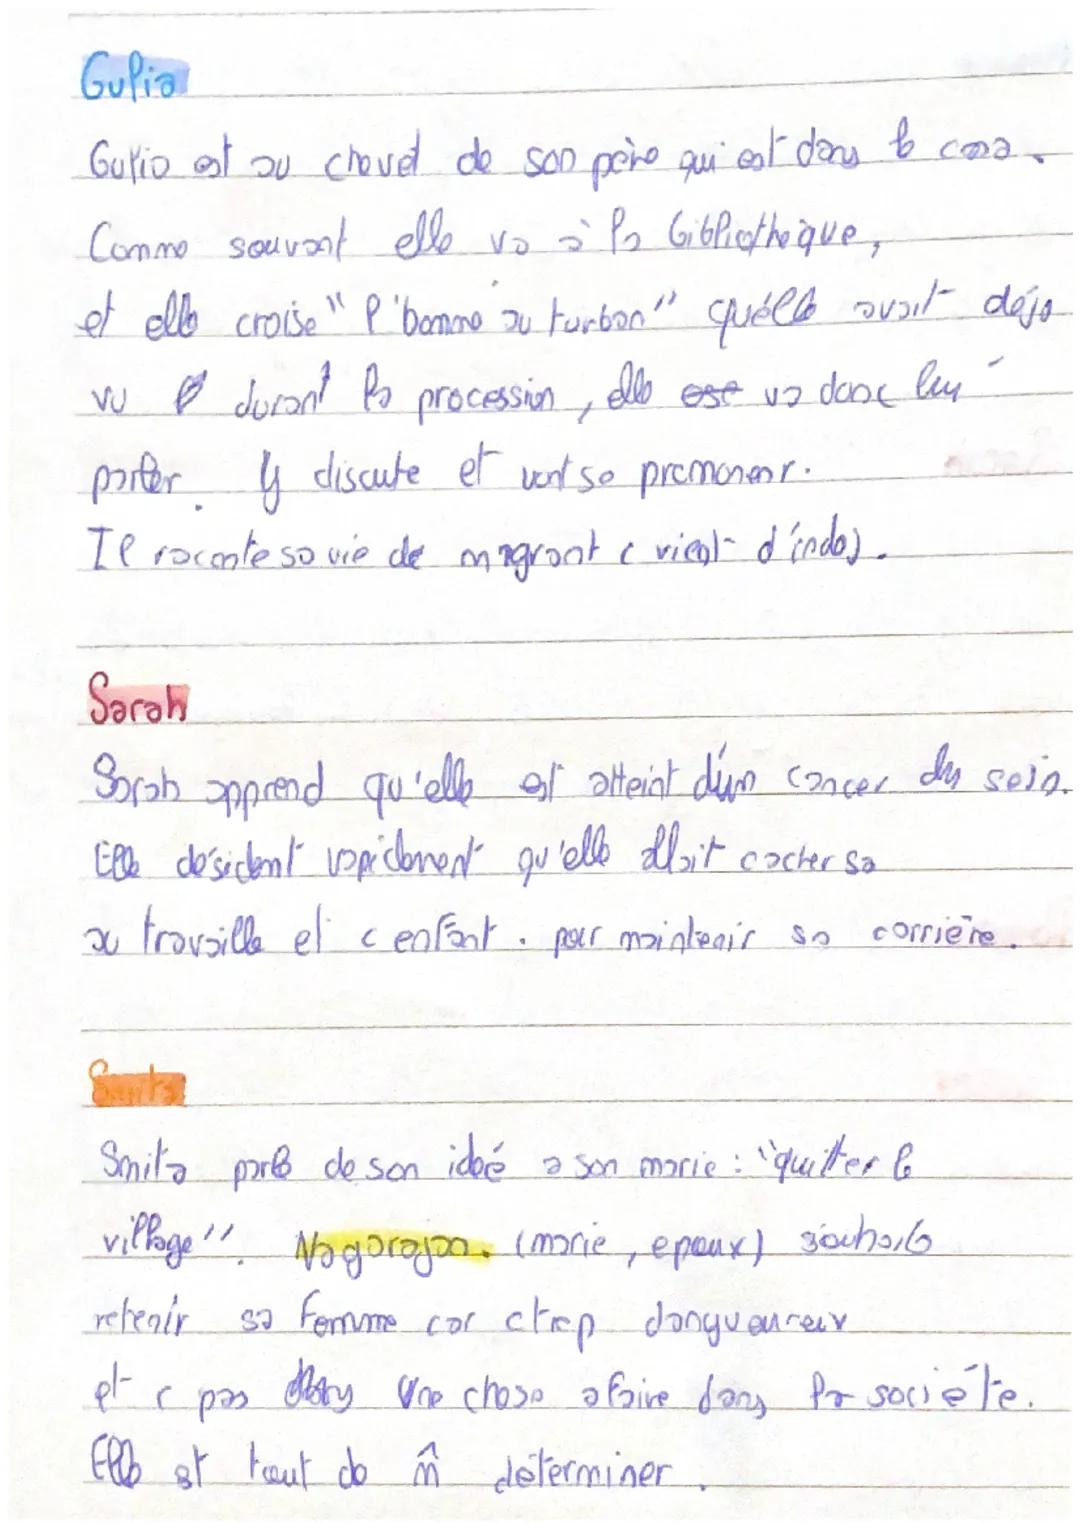 Gulia
Gulia est au chevet de son père qui est dans le coma.
Comme souvent elle va à la bibliothèque,
et elle croise "l'homme au turban" quélle avait déja
vu durant la procession, elle ose va donc luy
parler. Ij discute et vont se promener.
Il raconte sa vie de magrant (vient d'inde).
Sarah
Sarah apprend qu'elle est atteint d'un cancer du sein.
Elle désident rapidement qu'elle allait cacher sa
au travaille et c enfant. pour maintenir sa carrière.
Smita
Smita parle de son ideé a son marie : "quitter le
village". Nagarajan. (marie, epoux) souhaite
retenir sa femme car ctrop dangueureux
et c pas une chose a faire dans la société.
Elle est tout de m̂ déterminer.